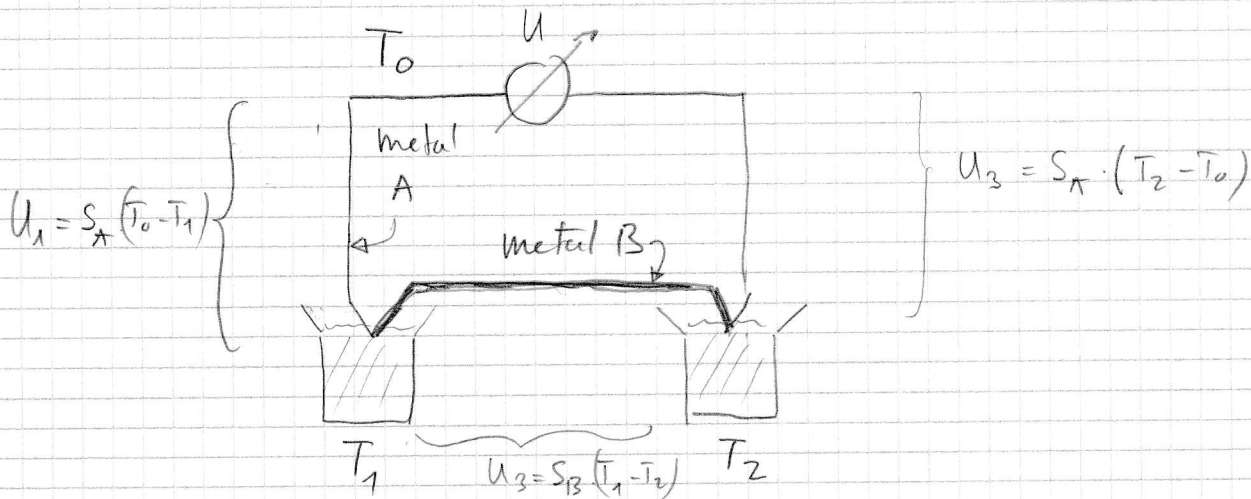 U
T₀
metal
A
U₁ = S_A (T₀ - T₁)
U₃ = S_A · (T₂ - T₀)
metal B
T₁
U₃ = S_B · (T₁ - T₂)
T₂